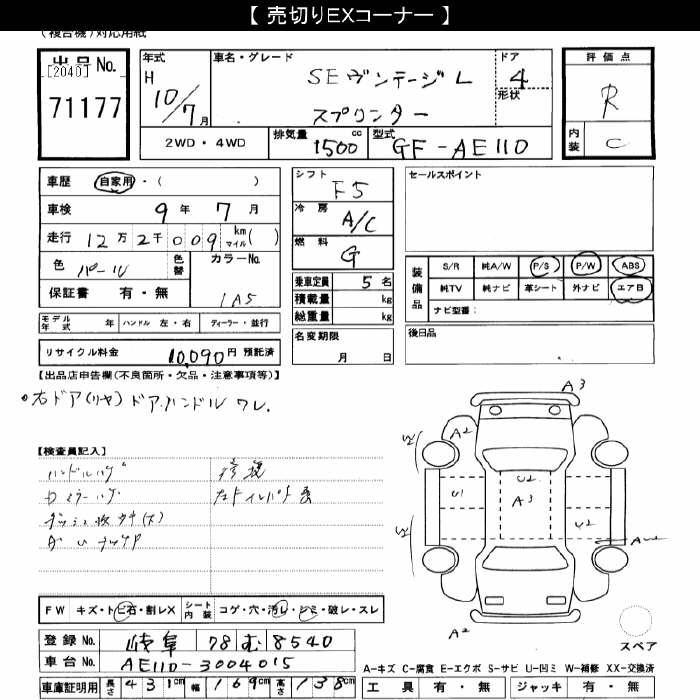 【 売切りEXコーナー 】
(複合機)対応用紙
出品No.
[2040]
71177
年式
H
10/7月
車名・グレード
SEヴィンテージL
スプリンター
ドア
4
形状
評価点
R
内装
C
2WD・4WD
排気量
1500cc
型式
GF-AE110
車歴 自家用・( )
車検 9年 7月
走行 12万2千009 km マイル( )
色 パール
色替
カラーNo.
1A5
保証書 有・無
モデル年式 年 ハンドル 左・右 ディーラー・並行
リサイクル料金 10,090円 預託済
シフト F5
冷房 A/C
燃料 G
乗車定員 5名
積載量 kg
総重量 kg
名変期限
月 日
セールスポイント
装備品
S/R 純A/W P/S P/W ABS
純TV 純ナビ 革シート 外ナビ エアB
ナビ型番:
後日品
【出品店申告欄(不良箇所・欠品・注意事項等)】
右ドア(リヤ)ドアハンドル ワレ.
【検査員記入】
A3
A2
U2
U1
U2
A3
U2
U2
A2
FW キズ・トビ石・割レX
シート内装 コゲ・穴・汚レ・シミ・破レ・スレ
登録No. 岐阜 78 む 8540
車台No. AE110-3004015
車庫証明用 長さ 431cm 幅 169cm 高さ 138cm
スペア
A-キズ C-腐食 E-エクボ S-サビ U-凹ミ W-補修 XX-交換済
工具 有・無 ジャッキ 有・無